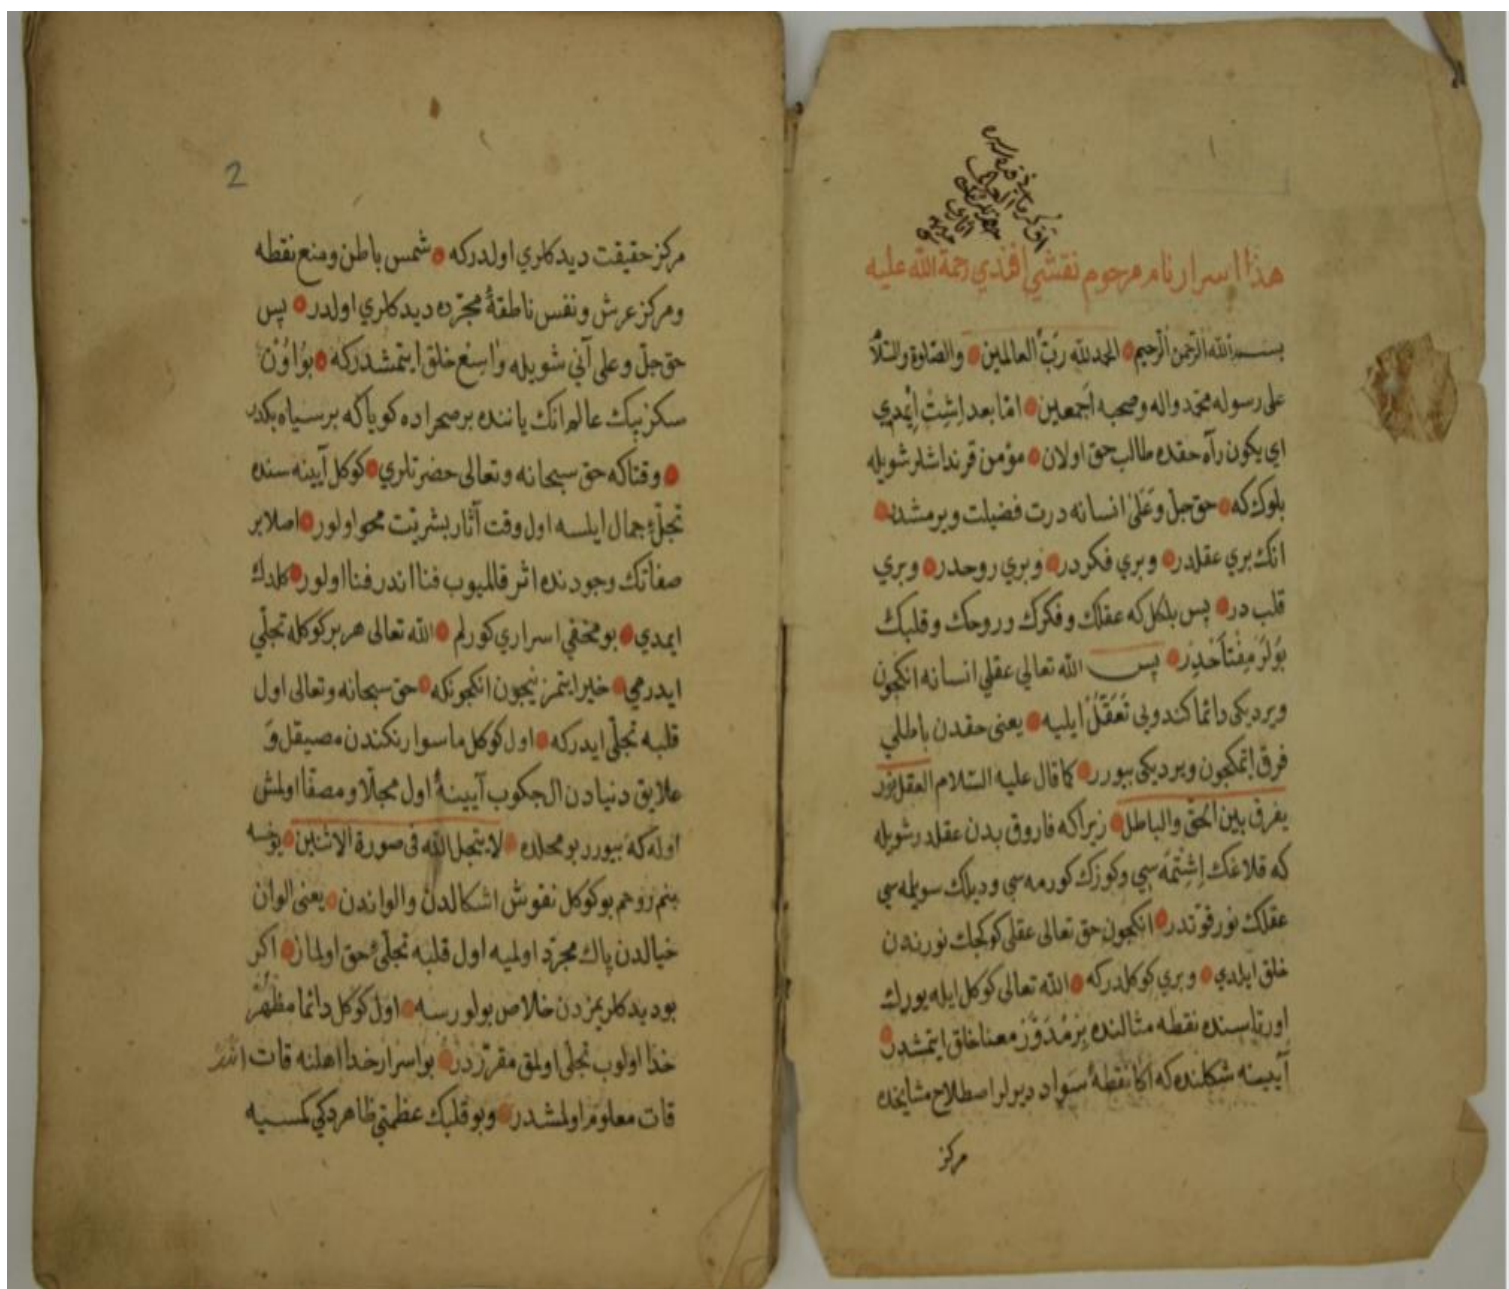 هذا اسرار نام مرحوم نقشي افندي رحمة الله عليه
بسم الله الرحمن الرحيم الحمد لله رب العالمين والصلوة والسلام
على رسوله محمد واله وصحبه اجمعين اما بعد اِشِتْ اِيْمدي
اي يكون راه حقده طالب حق اولان مؤمن قرنداشلر شويله
بلوك كه حق جل وعلى انسانه درت فضيلت ويرمشدر
انك بري عقلدر وبري فكردر وبري روحدر وبري
قلب در پس بلكل كه عقلك وفكرك وروحك وقلبك
بُولَرْ مِفْتَاحْدِرْ پس الله تعالي عقلي انسانه انكچون
ويرديكى دائما كندويى تَعَقُّلْ ايليه يعنى حقدن باطلي
فرق اِتمكچون ويرديكى بيورر كما قال عليه السلام العقل نور
يفرق بين الحق والباطل زيرا كه فاروق بدن عقلدر شويله
كه قلاغك اِشِتْمَه سي وكوزك كورمه سي وديلك سويلمه سي
عقلك نور قوتدر انكچون حق تعالى عقلى كوكچك نورندن
خلق ايلدي وبري كوكلدركه الله تعالى كوكل ايله يورك
اورتاسنده نقطه مثالنده بِرْ مُدَوَّرْ معنا خلق ايتمشدر
آيينه شكلنده كه اكا نقطهٔ سَواد ديرلر اصطلاح مشايخده
مركز
2
مركز حقيقت ديدكلري اولدركه شمس باطن ومنبع نقطه
ومركز عرش ونفس ناطقهٔ مجرّده ديدكلري اولدر پس
حق جل وعلى آني شويله واسع خلق ايتمشدركه بُو اوُنْ
سكز بيك عالم انك ياننده بر صحراده كويا كه بر سياه بكدر
وقتاكه حق سبحانه وتعالى حضرتلري كوكل آيينه سنده
تجلّئ جمال ايلسه اول وقت آثار بشريّت محو اولور اصلا بر
صفاتك وجودنده اثر قالميوب فنا اندر فنا اولور كلدك
ايمدي بو مخفي اسراري كورلم الله تعالى هر بر كوكله تجلّي
ايدرمي خير ايتمز نيچون انكچونكه حق سبحانه وتعالى اول
قلبه تجلّي ايدركه اول كوكل ماسوا رنكندن مصيقل وَ
علايق دنيادن ال چكوب آيينهٔ اول مجلّا ومصفّا اولمش
اوله كه بيورر بو محلده لا يتجلى الله في صورة الاثنين يوخسه
بنم روحم بو كوكل نقوش اشكالدن والواندن يعنى الوان
خيالدن پاك مجرّد اولميه اول قلبه تجلّئ حق اولماز اكر
بو ديدكلريمزدن خلاص بولورسه اول كوكل دائما مظْهَرْ
خدا اولوب تجلّى اولمق مقرّردر بو اسرار خدا اهلنه قات اندر
قات معلوم اولمشدر وبو قلبك عظمتي ظاهردكي كمسيه